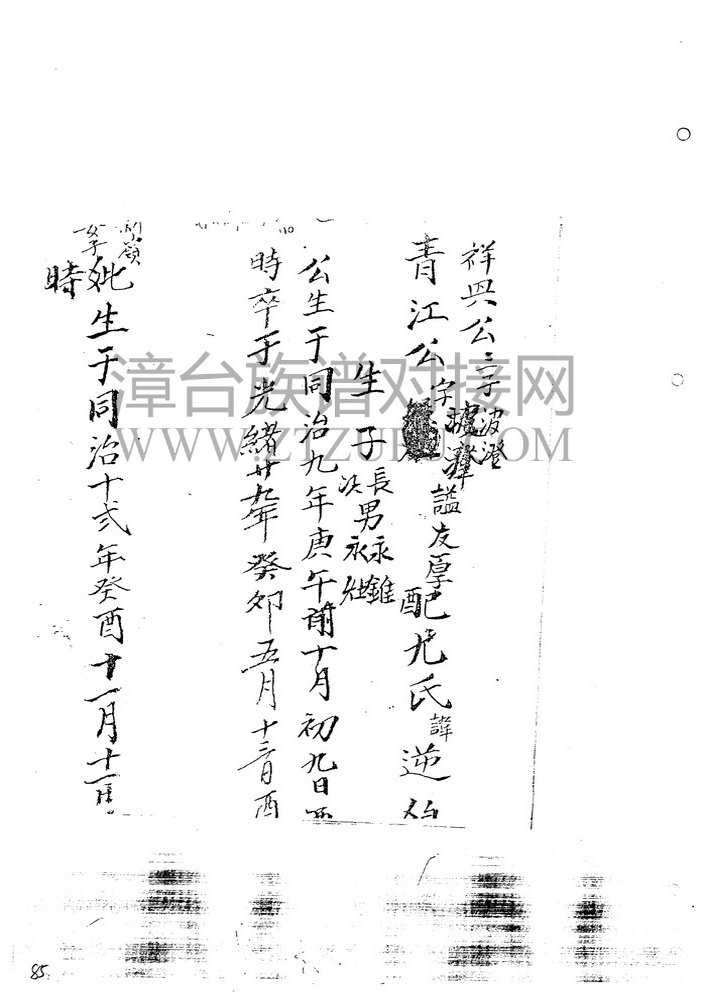 祥興公三子波澄
青江公字 諡友厚配尤氏諱逆
生子長男永錐
次 永
公生于同治九年庚午前十月初九日酉
時卒于光緒廿九年癸卯五月十三日酉
妣生于同治十弍年癸酉十一月十一日
時
漳台族谱对接网
WWW.ZTZUPU.COM
85